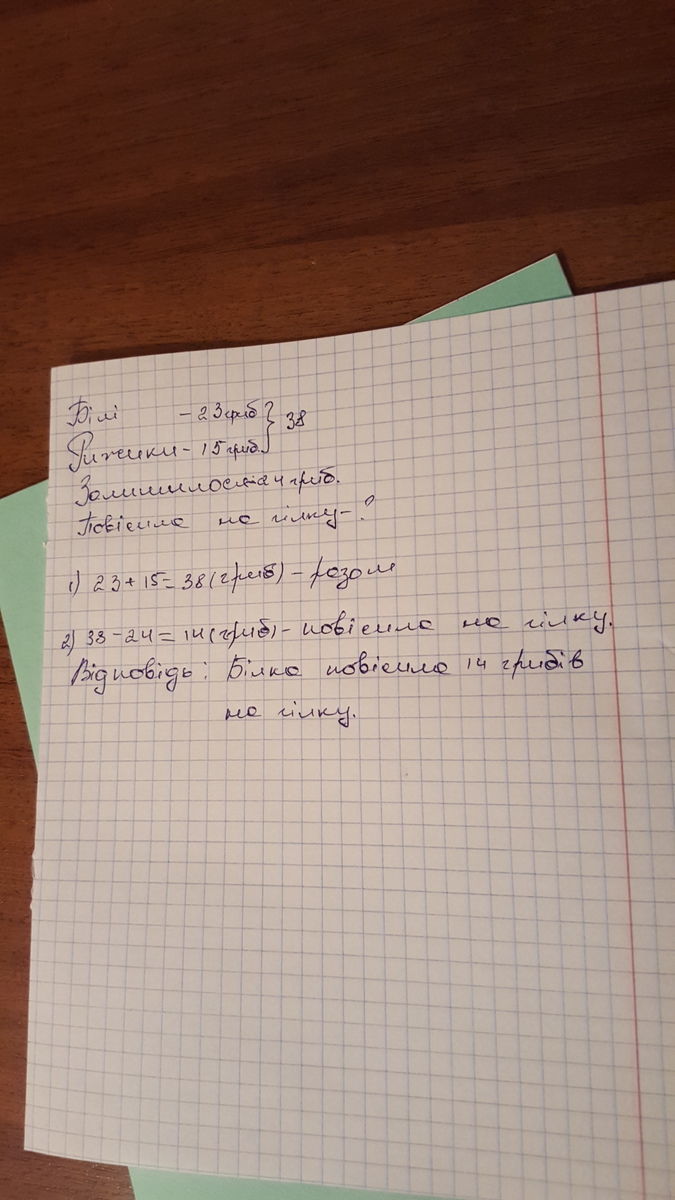 Білі - 23 гриб } 38
Рижики - 15 гриб.
Залишилося 24 гриб.
Повісила на гілку - ?
1) 23 + 15 = 38 (гриб) - разом
2) 38 - 24 = 14 (гриб) - повісила на гілку.
Відповідь: Білка повісила 14 грибів
на гілку.